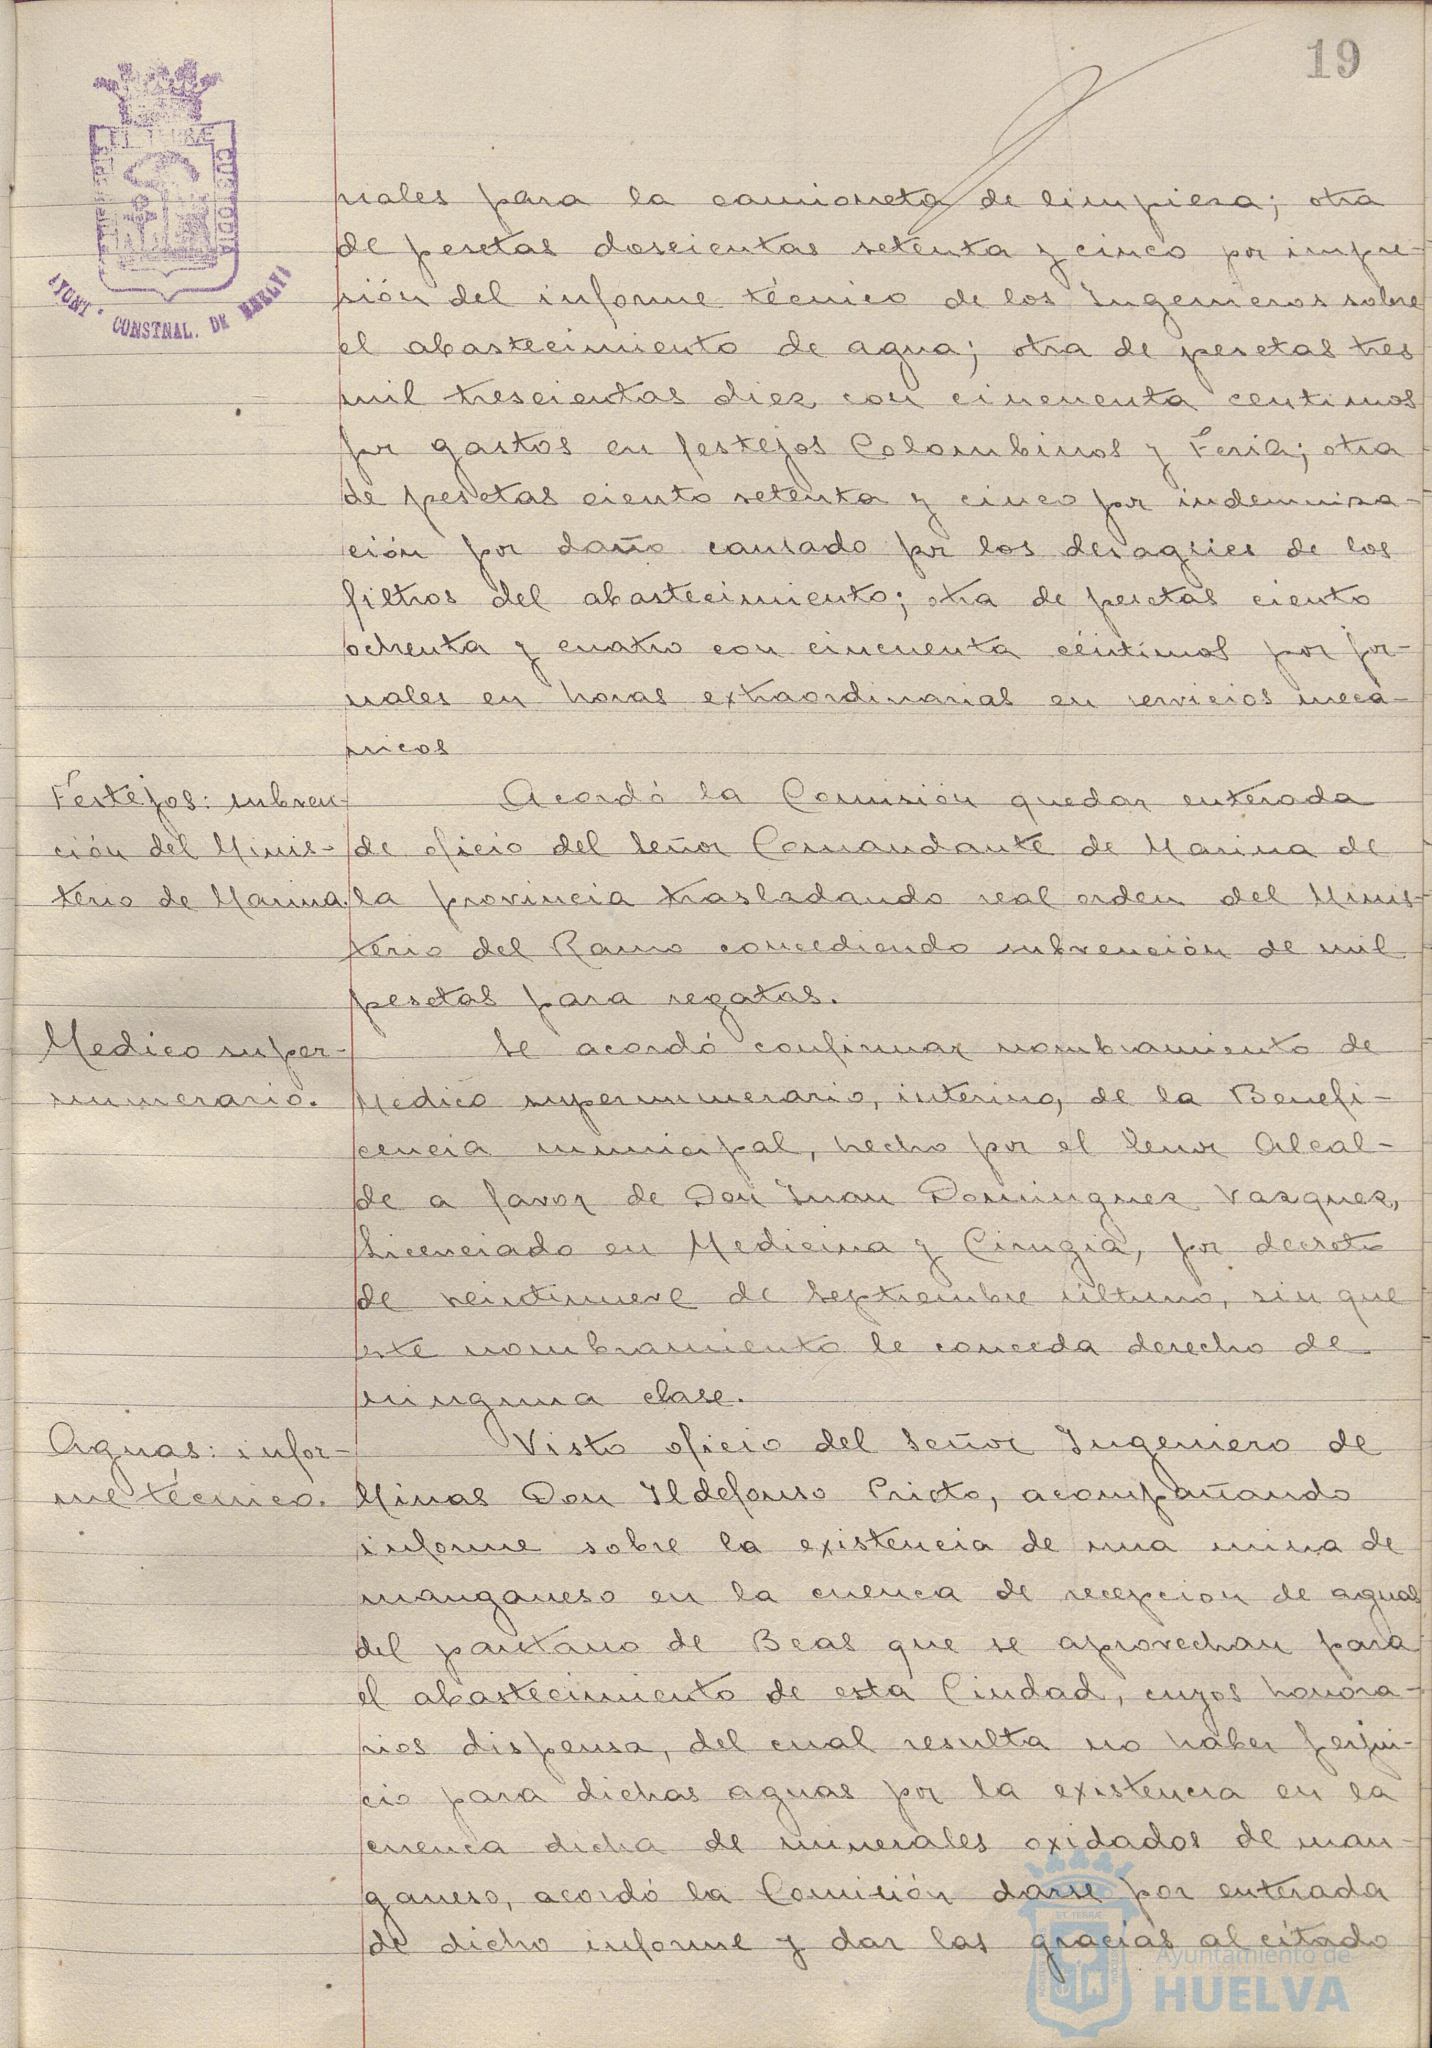 19
PORTUS MARIS ET TERRÆ CUSTODIA
AYUNT. CONSTNAL. DE HUELVA
riales para la camioneta de limpieza; otra
de pesetas doscientas setenta y cinco por impre-
sión del informe técnico de los Ingenieros sobre
el abastecimiento de agua; otra de pesetas tres
mil trescientas diez con cincuenta centimos
por gastos en festejos Colombinos y Feria; otra
de pesetas ciento setenta y cinco por indemniza-
ción por daño causado por los desagües de los
filtros del abastecimiento; otra de pesetas ciento
ochenta y cuatro con cincuenta céntimos por jor-
nales en horas extraordinarias en servicios mecá-
nicos
Festejos: subven-
ción del Minis-
terio de Marina.
Acordó la Comisión quedar enterada
de oficio del Señor Comandante de Marina de
la provincia trasladando real orden del Minis-
terio del Ramo concediendo subvención de mil
pesetas para regatas.
Medico super-
numerario.
Se acordó confirmar nombramiento de
Medico supernumerario, interino, de la Benefi-
cencia municipal, hecho por el Senor Alcal-
de a favor de Don Juan Dominguez Vazquez,
Licenciado en Medicina y Cirugia, por decreto
de veintinueve de Septiembre último, sin que
este nombramiento le conceda derecho de
ninguna clase.
Aguas: infor-
me técnico.
Visto oficio del Señor Ingeniero de
Minas Don Ildefonso Prieto, acompañando
informe sobre la existencia de una mina de
manganeso en la cuenca de recepcion de aguas
del pantano de Beas que se aprovechan para
el abastecimiento de esta Ciudad, cuyos honora-
rios dispensa, del cual resulta no haber perjui-
cio para dichas aguas por la existencia en la
cuenca dicha de minerales oxidados de man-
ganeso, acordó la Comisión darse por enterada
de dicho informe y dar las gracias al citado
Ayuntamiento de
HUELVA